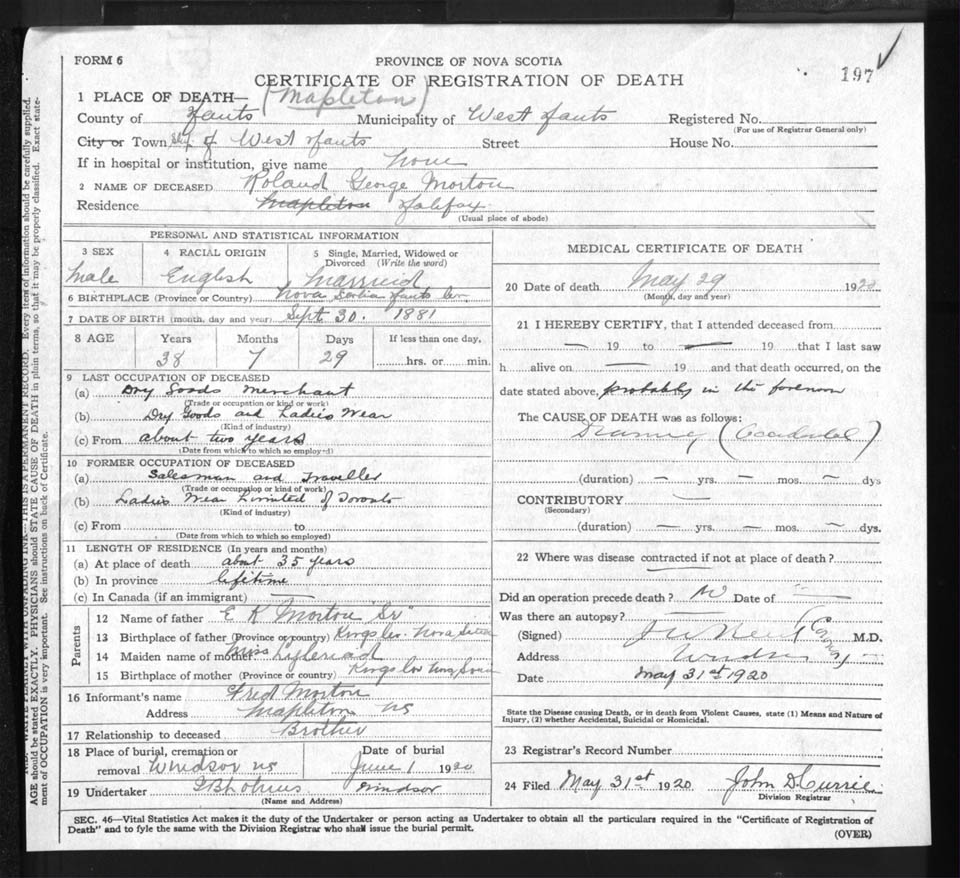 FORM 6
PROVINCE OF NOVA SCOTIA
197
CERTIFICATE OF REGISTRATION OF DEATH
1 PLACE OF DEATH— (Mapleton)
County of Hants Municipality of West Hants Registered No.
(For use of Registrar General only)
City or Town of West Hants Street House No.
If in hospital or institution, give name none
2 NAME OF DECEASED Roland George Morton
Residence Mapleton Halifax
(Usual place of abode)
PERSONAL AND STATISTICAL INFORMATION
3 SEX 4 RACIAL ORIGIN 5 Single, Married, Widowed or Divorced (Write the word)
Male English Married
6 BIRTHPLACE (Province or Country) Nova Scotia Hants Co
7 DATE OF BIRTH (month, day and year) Sept 30. 1881
8 AGE Years Months Days If less than one day,
38 7 29 hrs. or min.
9 LAST OCCUPATION OF DECEASED
(a) Dry Goods Merchant
(Trade or occupation or kind or work)
(b) Dry Goods and Ladies Wear
(Kind of industry)
(c) From about two years
(Date from which to which so employed)
10 FORMER OCCUPATION OF DECEASED
(a) Salesman and Traveller
(Trade or occupation or kind of work)
(b) Ladies Wear Limited of Toronto
(Kind of industry)
(c) From to
(Date from which to which so employed)
11 LENGTH OF RESIDENCE (In years and months)
(a) At place of death about 35 years
(b) In province lifetime
(c) In Canada (if an immigrant) —
Parents
12 Name of father E K Morton "Sr"
13 Birthplace of father (Province or country) Kings Co. Nova Scotia
14 Maiden name of mother Miss
15 Birthplace of mother (Province or country) Kings Co Nova Scotia
16 Informant's name Fred Morton
Address Mapleton NS
17 Relationship to deceased Brother
18 Place of burial, cremation or removal Windsor NS
Date of burial June 1 1920
19 Undertaker Windsor
(Name and Address)
MEDICAL CERTIFICATE OF DEATH
20 Date of death May 29 1920
(Month, day and year)
21 I HEREBY CERTIFY, that I attended deceased from
— 19 to — 19 that I last saw
h alive on — 19 and that death occurred, on the
date stated above, probably in the forenoon
The CAUSE OF DEATH was as follows:
(Accidental)
(duration) — yrs. — mos. — dys
CONTRIBUTORY —
(Secondary)
(duration) — yrs. — mos. — dys.
22 Where was disease contracted if not at place of death?
—
Did an operation precede death? No Date of —
Was there an autopsy? —
(Signed) M.D.
Address Windsor
Date May 31st 1920
State the Disease causing Death, or in death from Violent Causes, state (1) Means and Nature of
Injury, (2) whether Accidental, Suicidal or Homicidal.
23 Registrar's Record Number
24 Filed May 31st 1920 John D Currie
Division Registrar
SEC. 46—Vital Statistics Act makes it the duty of the Undertaker or person acting as Undertaker to obtain all the particulars required in the "Certificate of Registration of
Death" and to fyle the same with the Division Registrar who shall issue the burial permit.
(OVER)
WRITE PLAINLY WITH UNFADING INK—THIS IS A PERMANENT RECORD. Every item of information should be carefully supplied.
AGE should be stated EXACTLY. PHYSICIANS should STATE CAUSE OF DEATH in plain terms, so that it may be properly classified. Exact state-
ment of OCCUPATION is very important. See instructions on back of Certificate.